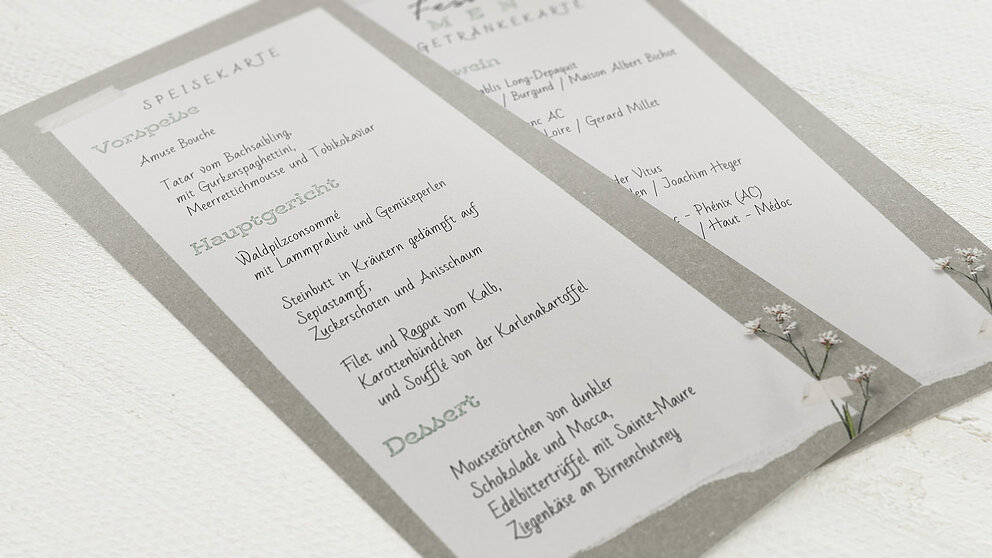 SPEISEKARTE
Vorspeise
Amuse Bouche
Tatar vom Bachsaibling,
mit Gurkenspaghettini,
Meerrettichmousse und Tobikokaviar
Hauptgericht
Waldpilzconsommé
mit Lammpraliné und Gemüseperlen
Steinbutt in Kräutern gedämpft auf
Sepiastampf,
Zuckerschoten und Anisschaum
Filet und Ragout vom Kalb,
Karottenbündchen
und Soufflé von der Karlenakartoffel
Dessert
Moussetörtchen von dunkler
Schokolade und Mocca,
Edelbittertrüffel mit Sainte-Maure
Ziegenkäse an Birnenchutney
MEN
GETRÄNKEKARTE
wein
ablis Long-Depaquit
/ Burgund / Maison Albert Bichot
nc AC
Loire / Gerard Millet
der Vitus
den / Joachim Heger
- Phénix (AC)
/ Haut - Médoc